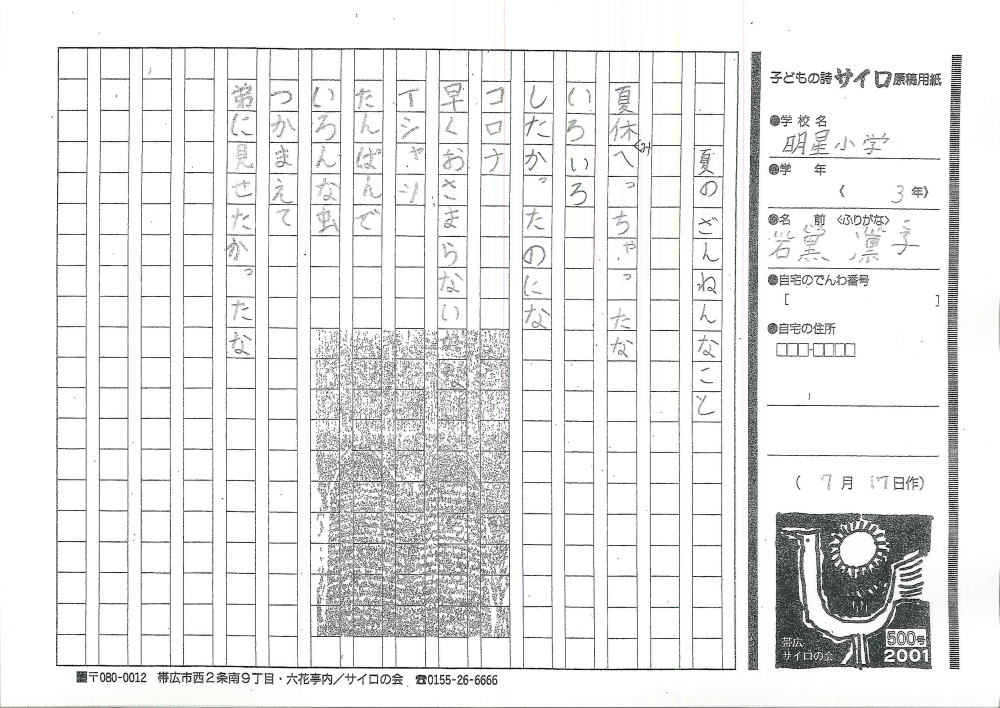 子どもの詩サイロ原稿用紙
●学校名
明星小学
●学 年
(3年)
●名 前 (ふりがな)
岩黒 凛子
●自宅のでんわ番号
[ ]
●自宅の住所
□□□-□□□□
(7月17日作)
帯広
サイロの会
500号
2001
夏のざんねんなこと
夏休みへっちゃったな
いろいろ
したかったのにな
コロナ
早くおさまらないかな
Tシャツ
たんぱんで
いろんな虫
つかまえて
弟に見せたかったな
〒080-0012 帯広市西2条南9丁目・六花亭内/サイロの会 ☎0155-26-6666